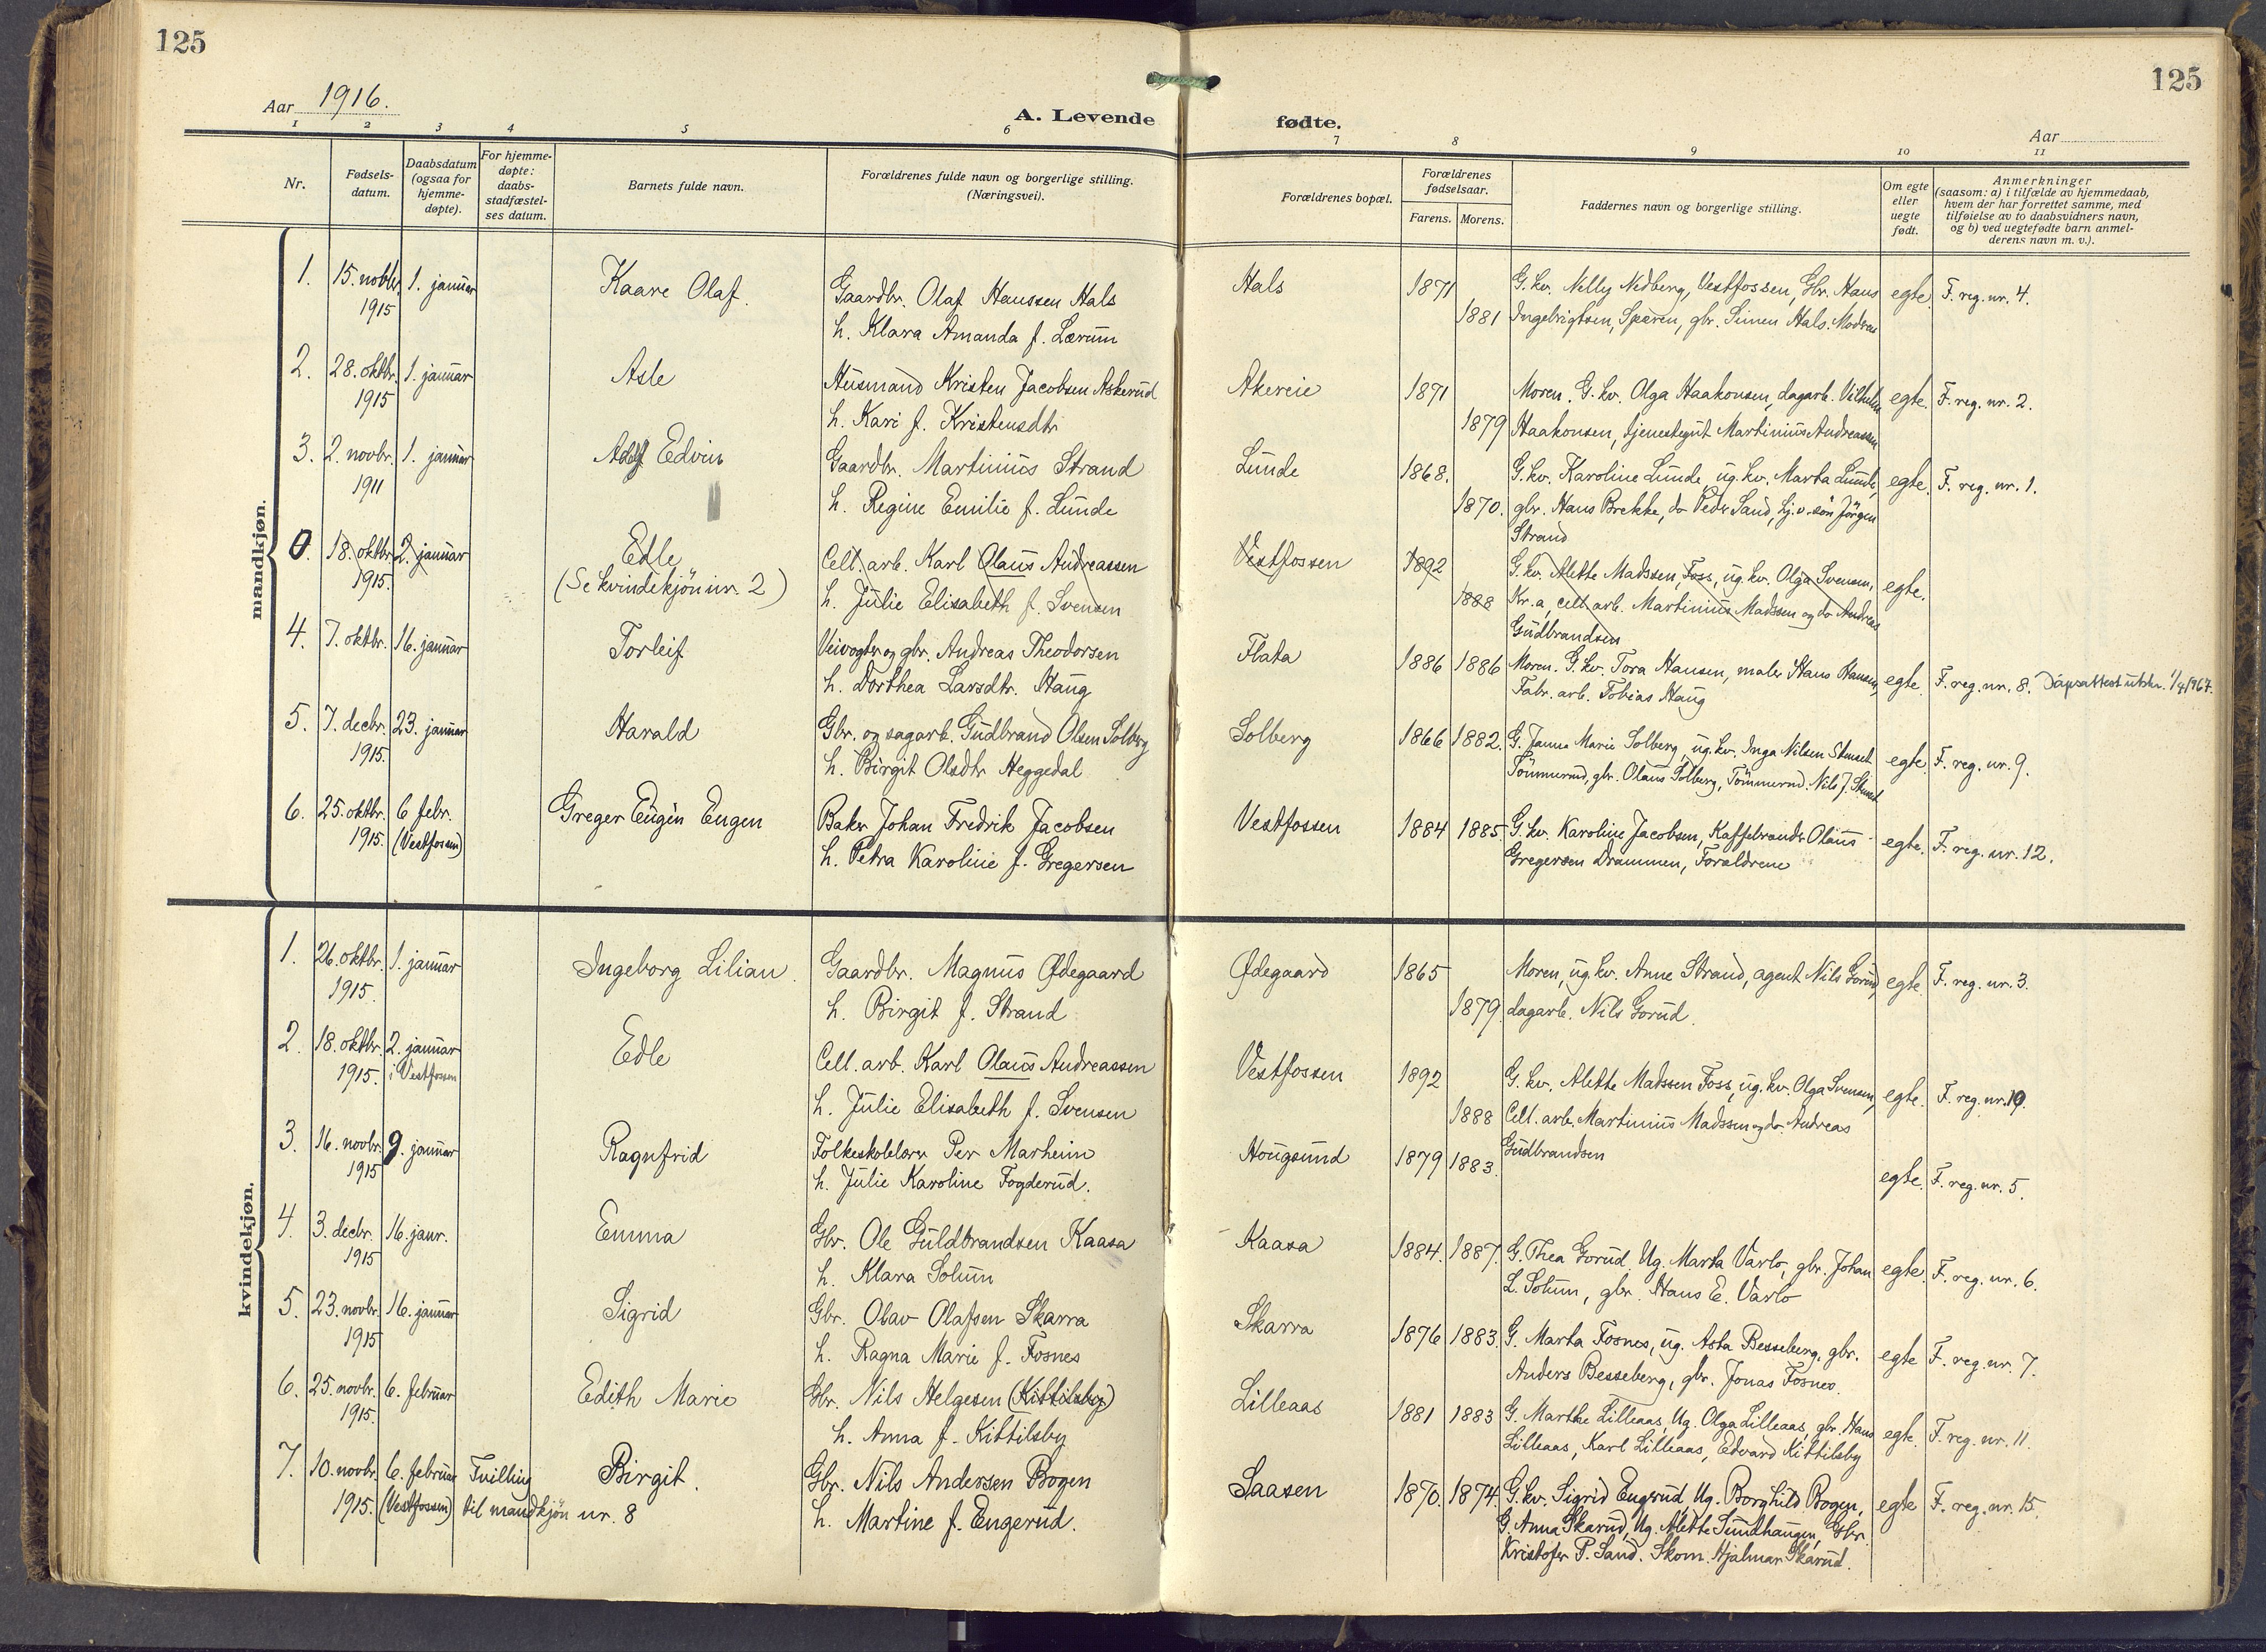 125
125
Aar 1916.
A. Levende fødte.
Aar
1 2 3 4 5 6 7 8 9 10 11
Nr.
Fødsels-
datum.
Daabsdatum
(ogsaa for
hjemme-
døpte).
For hjemme-
døpte:
daabs-
stadfæstel-
ses datum.
Barnets fulde navn.
Forældrenes fulde navn og borgerlige stilling.
(Næringsvei).
Forældrenes bopæl.
Forældrenes
fødselsaar.
Farens. Morens.
Faddernes navn og borgerlige stilling.
Om egte
eller
uegte
født.
Anmerkninger
(saasom: a) i tilfælde av hjemmedaab,
hvem der har forrettet samme, med
tilføielse av to daabsvidners navn,
og b) ved uegtefødte barn anmel-
derens navn m. v.).
mandkjøn.
1. 15. novbr. 1. januar Kaare Olaf. Gaardbr. Olaf Hanssen Hals Hals 1871 G. kv. Nelly Nedberg, Vestfossen, Gbr. Hans egte. F. reg. nr. 4.
1915 h. Klara Amanda f. Lærum 1881 Ingebrigtsen, Sparen, gbr. Simen Hals. Modren
2. 28. oktbr. 1. januar Asle Husmand Kristen Jacobsen Askerud Akereie 1871 Moren. G. kv. Olga Haakonsen, dagarb. Vilhelm egte. F. reg. nr. 2.
1915 h. Kari f. Kristensdtr 1879 Haakonsen, tjenestegut Martinius Andreassen
3. 2. novbr. 1. januar Adolf Edvin Gaardbr. Martinius Strand Lunde 1868. G. kv. Karoline Lunde, ug. kv. Marta Lunde, egte. F. reg. nr. 1.
1911 h. Regine Emilie f. Lunde 1870. gbr. Hans Brekke, do Peder Sand, Lj. v. søn Jörgen
Strand
0. 18. oktbr. 2. januar Edle Cell. arb. Karl Olaus Andreassen Vestfossen 1892 G. kv. Alette Madssen, Foss, ug. kv. Olga Svensen, egte.
1915. (Se kvindekjön nr. 2) h. Julie Elisabeth f. Svensen 1888 Kr.a, cell. arb. Martinius Madssen og do Andreas
Gudbrandsen
4. 7. oktbr. 16. januar Torleif Veivogter og gbr. Andreas Theodorsen Flata 1886 1886 Moren. G. kv. Tora Hansen, maler Hans Hansen, egte. F. reg. nr. 8. Dåpsattest utskr. 1/4 1967.
h. Dorthea Larsdtr. Haug Fabr. arb. Tobias Haug
5. 7. decbr. 23. januar Harald Gbr. og sagarb. Gudbrand Olsen Solberg Solberg 1866 1882. G. Janna Marie Solberg, ug. kv. Inga Nilsen Stenset egte. F. reg. nr. 9.
1915. h. Birgit Olsdtr Heggedal Tömmerud, gbr. Olaus Solberg, Tömmerud. Nils J. Stenset
6. 25. oktbr. 6 febr. Greger Eugén Eugen Baker Johan Fredrik Jacobsen Vestfossen 1884 1885. G. kv. Karoline Jacobsen, Kaffebrander Olaus egte. F. reg. nr. 12.
1915. (Vestfossen) h. Petra Karoline f. Gregersen Gregersen Drammen, Forældrene
kvindekjøn.
1. 26. oktbr. 1. januar Ingeborg Lilian. Gaardbr. Magnus Ødegaard Ødegaard 1865 Moren, ug. kv. Anne Strand, agent Nils Gorud, egte. F. reg. nr. 3.
1915. h. Birgit f. Strand 1879. dagarb. Nils Gorud.
2. 18. oktbr. 2. januar Edle Cell. arb. Karl Olaus Andreassen Vestfossen 1892 G. kv. Alette Madssen Foss, ug. kv. Olga Svensen, egte. F. reg. nr. 10.
1915. i Vestfossen h. Julie Elisabeth f. Svensen 1888 Cell. arb. Martinius Madssen og do. Andreas
Gudbrandsen
3. 16. novbr. 9. januar Ragnfrid Folkeskolelærer Per Marheim Hougsund 1879 1883. egte. F. reg. nr. 5.
1915 h. Julie Karoline Fogderud.
4. 3. decbr. 16. janr. Emma Gbr. Ole Guldbrandsen Kaasa Kaasa 1884. 1887. G. Thea Gorud. Ug. Marta Varlo, gbr. Johan egte. F. reg. nr. 6.
1915 h. Klara Solum L. Solum, gbr. Hans E. Varlo
5. 23. novbr. 16. januar Sigrid Gbr. Olav Olafsen Skarra Skarra 1876 1883. G. Marta Fosnes, ug. Asta Besseberg, gbr. egte F. reg. nr. 7.
1915 h. Ragna Marie f. Fosnes Anders Besseberg, gbr. Jonas Fosnes.
6. 25. novbr. 6. februar Edith Marie Gbr. Nils Helgesen (Kittilsby) Lilleaas 1881 1883 G. Marthe Lilleaas, Ug. Olga Lilleaas, gbr. Hans egte. F. reg. nr. 11.
1915. h. Anna f. Kittilsby Lilleaas, Karl Lilleaas, Edvard Kittilsby
7. 10. novbr. 6. februar Tvilling Birgit. Gbr. Nils Andersen Bogen Saasen 1870. 1874. G. kv. Sigrid Engerud, Ug. Borghild Bogen, egte F. reg. nr. 15.
1915. (Vestfossen) til mandkjön nr. 8 h. Martine f. Engerud. G. Anna Skarud, Ug. Alette Sundhaugen, Gbr.
Kristofer P. Sand. Skom. Hjalmar Skarud.